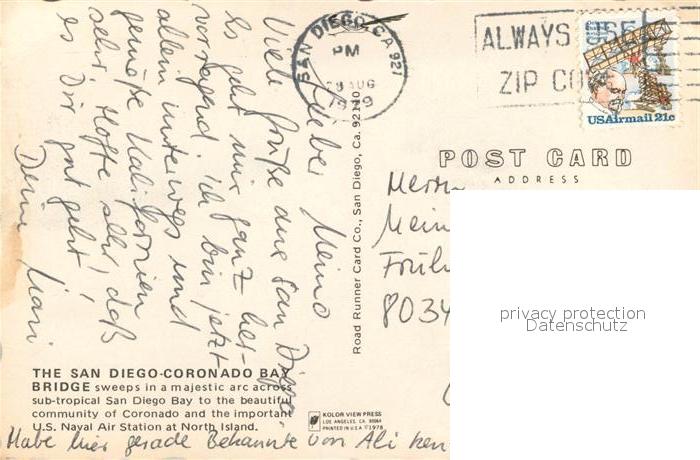 SAN DIEGO, CA 921
PM
28 AUG
1979
ALWAYS USE
ZIP CODE
USAirmail 21c
POST CARD
ADDRESS
Herrn
Mein
Früh
8034
privacy protection
Datenschutz
Lieber Meino
Viele Grüße aus San Diego.
Es geht mir ganz her-
vorragend. Ich bin jetzt
allein unterwegs und
genieße Kalifornien
sehr. Hoffe sehr, daß
es Dir gut geht!
Deine Mari
Road Runner Card Co., San Diego, Ca. 92110
THE SAN DIEGO-CORONADO BAY
BRIDGE sweeps in a majestic arc across
sub-tropical San Diego Bay to the beautiful
community of Coronado and the important
U.S. Naval Air Station at North Island.
KOLOR VIEW PRESS
LOS ANGELES, CA. 90064
PRINTED IN U.S.A. © 1978
Habe hier gerade Bekannte von Ali ken